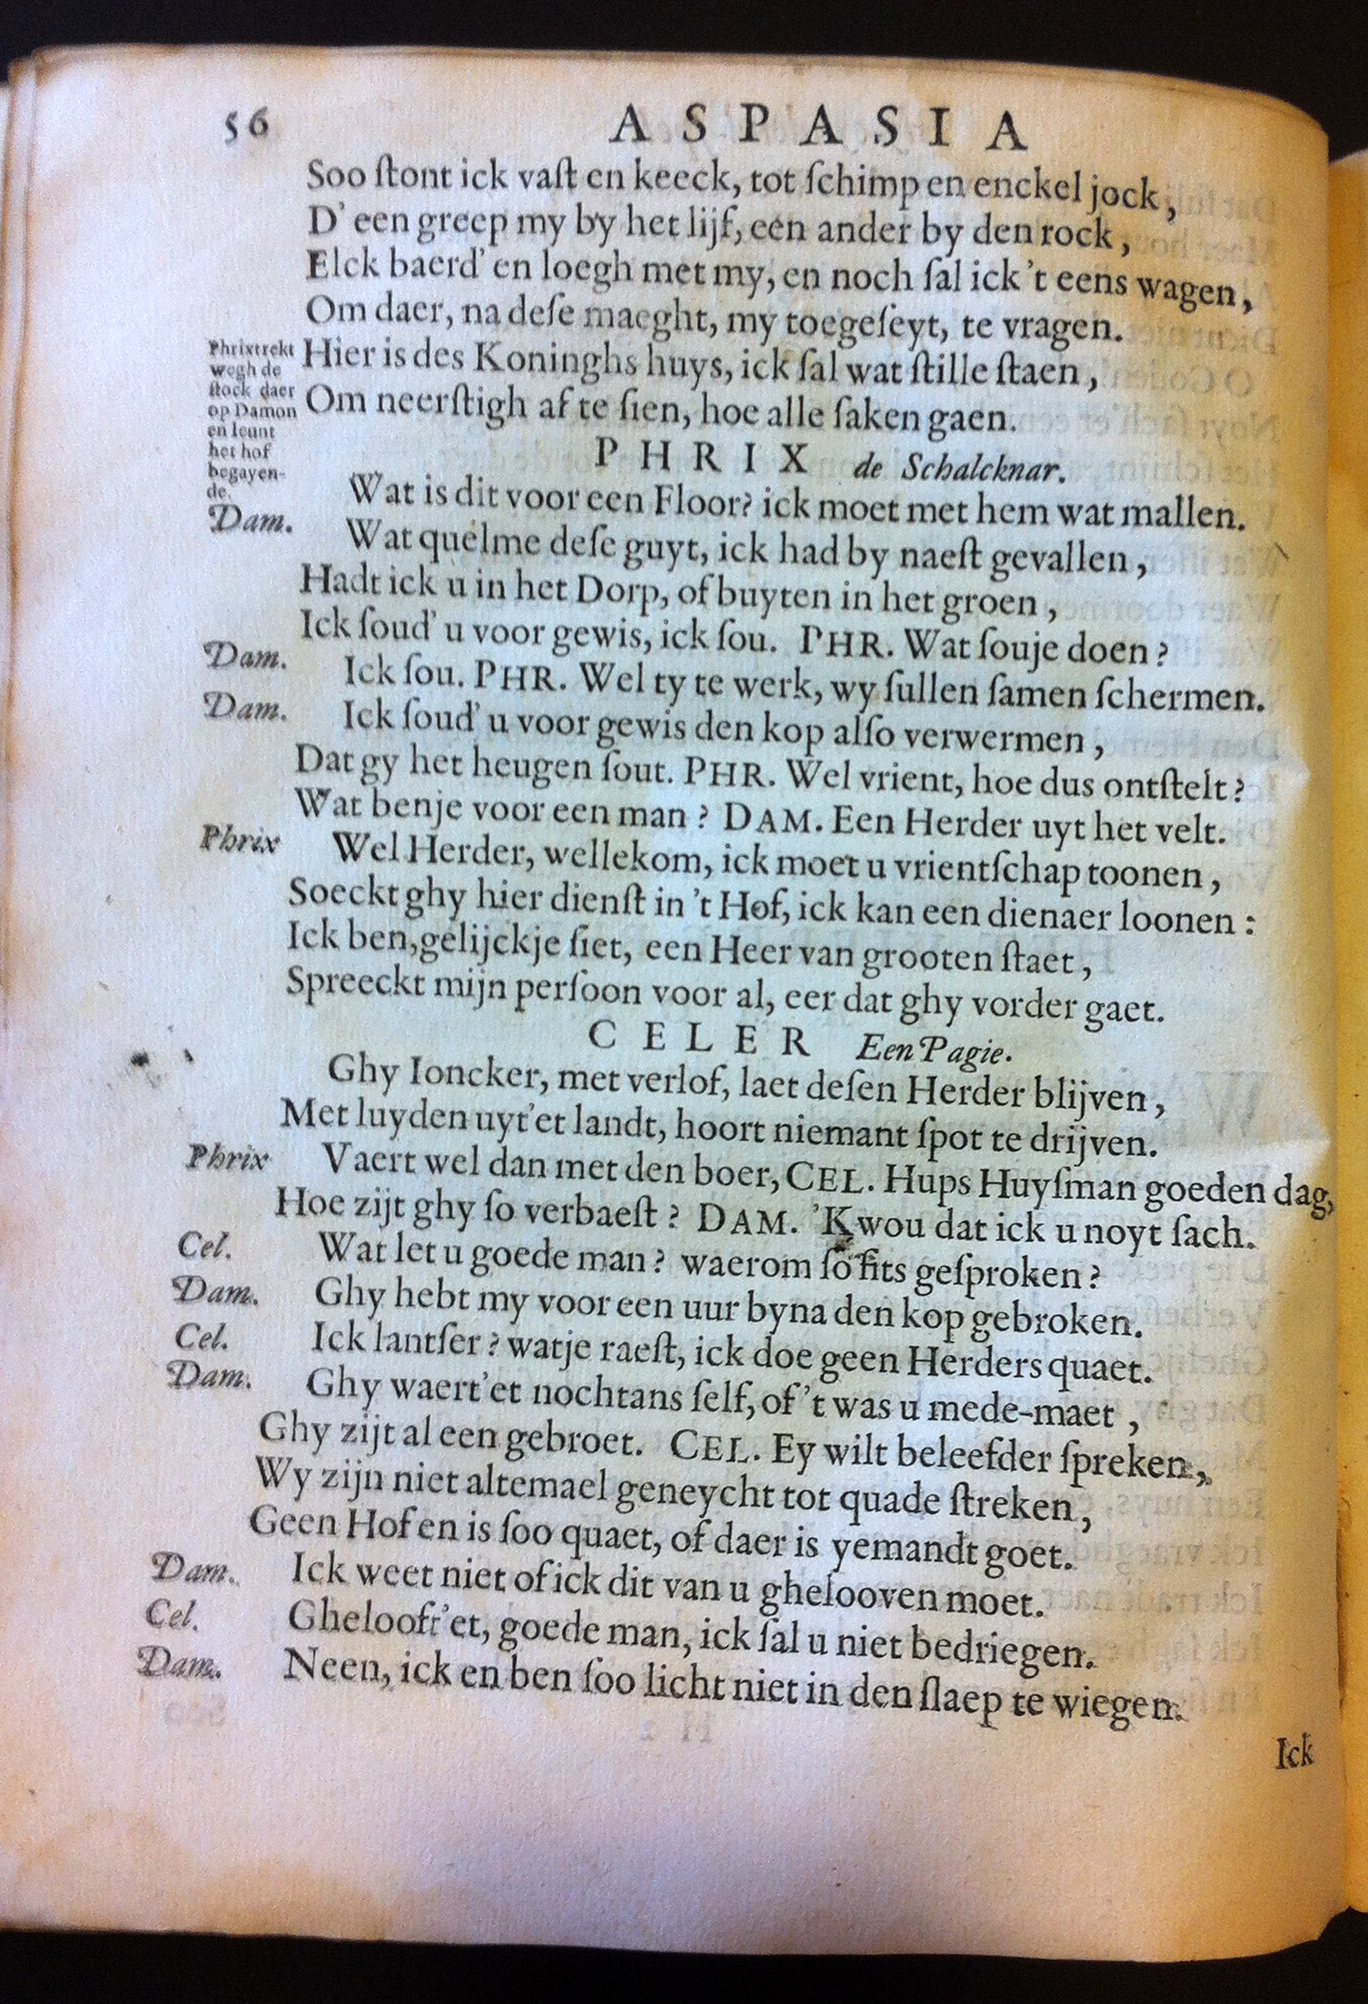 56 ASPASIA
Soo ſtont ick vaſt en keeck, tot ſchimp en enckel jock,
D' een greep my by het lijf, een ander by den rock,
Elck baerd' en loegh met my, en noch ſal ick 't eens wagen,
Om daer, na deſe maeght, my toegeſeyt, te vragen.
Phrix trekt
wegh de
ſtock daer
op Damon
en leunt
het hof
begayen-
de.
Hier is des Koninghs huys, ick ſal wat ſtille ſtaen,
Om neerſtigh af te ſien, hoe alle ſaken gaen.
PHRIX de Schalcknar.
Wat is dit voor een Floor? ick moet met hem wat mallen.
Dam. Wat quelme deſe guyt, ick had by naeſt gevallen,
Hadt ick u in het Dorp, of buyten in het groen,
Ick ſoud' u voor gewis, ick ſou. PHR. Wat ſouje doen?
Dam. Ick ſou. PHR. Wel ty te werk, wy ſullen ſamen ſchermen.
Dam. Ick ſoud' u voor gewis den kop alſo verwermen,
Dat gy het heugen ſout. PHR. Wel vrient, hoe dus ontſtelt?
Wat benje voor een man? DAM. Een Herder uyt het velt.
Phrix Wel Herder, wellekom, ick moet u vrientſchap toonen,
Soeckt ghy hier dienſt in 't Hof, ick kan een dienaer loonen:
Ick ben, gelijckje ſiet, een Heer van grooten ſtaet,
Spreeckt mijn perſoon voor al, eer dat ghy vorder gaet.
CELER Een Pagie.
Ghy Ioncker, met verlof, laet deſen Herder blijven,
Met luyden uyt'et landt, hoort niemant ſpot te drijven.
Phrix Vaert wel dan met den boer, CEL. Hups Huyſman goeden dag,
Hoe zijt ghy ſo verbaeſt? DAM. 'K wou dat ick u noyt ſach.
Cel. Wat let u goede man? waerom ſo fits geſproken?
Dam. Ghy hebt my voor een uur byna den kop gebroken.
Cel. Ick lantſer? watje raeſt, ick doe geen Herders quaet.
Dam. Ghy waert'et nochtans ſelf, of 't was u mede-maet,
Ghy zijt al een gebroet. CEL. Ey wilt beleefder ſpreken,
Wy zijn niet altemael geneycht tot quade ſtreken,
Geen Hof en is ſoo quaet, of daer is yemandt goet.
Dam. Ick weet niet of ick dit van u ghelooven moet.
Cel. Ghelooft'et, goede man, ick ſal u niet bedriegen.
Dam. Neen, ick en ben ſoo licht niet in den ſlaep te wiegen.
Ick